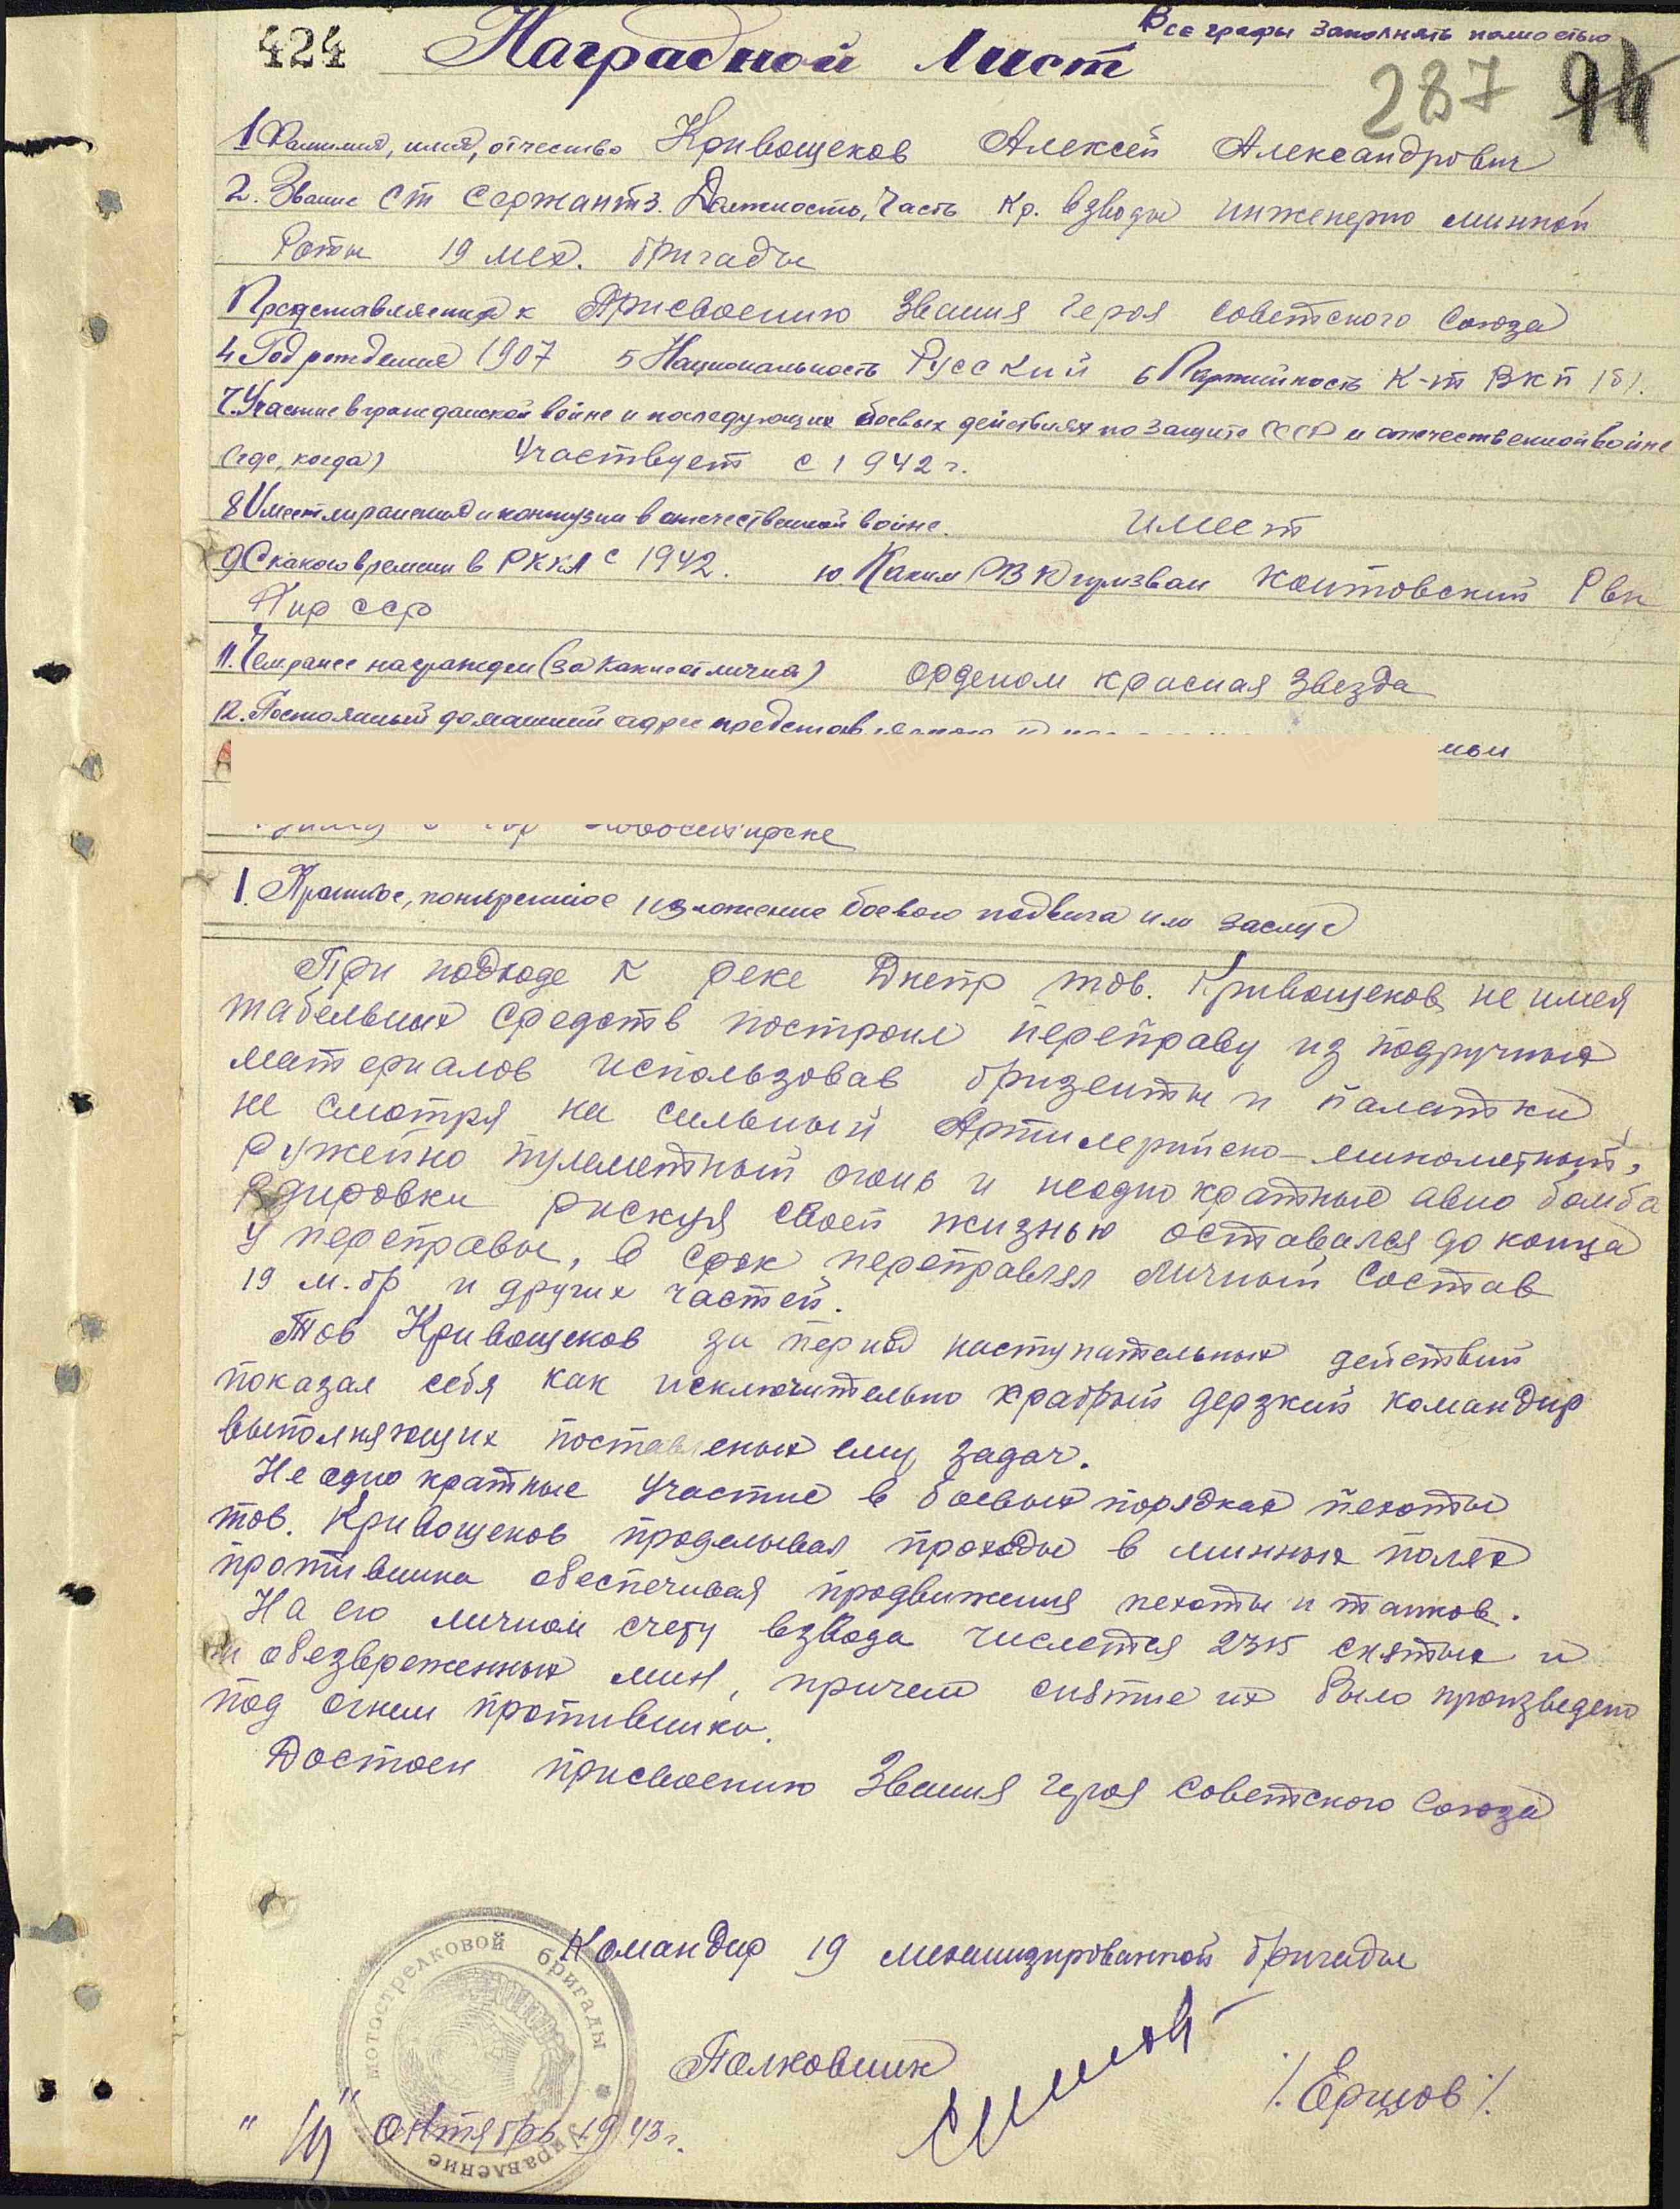 Все графы заполнять полностью
424 Наградной Лист
287
1 Фамилия, имя, отчество Кривощеков Алексей Александрович
2. Звание Ст Сержант 3. Должность, Часть Кр. взвода инженерно минной
Роты 19 мех. бригады
Представляется к Присвоению Звания Героя Советского Союза
4 Год рождения 1907 5 Национальность Русский 6 Партийность К-т ВКП (б).
7. Участие в гражданской войне и последующих боевых действиях по защите СССР и отечественной войне
(где, когда) Участвует с 1942 г.
8 Имеет ли ранения и контузии в отечественной войне. имеет
9 С какого времени в РККА с 1942. 10 Каким РВК призван Контовский Рвк
Кир ССР
11. Чем ранее награжден (за какие отличия) орденом красная Звезда
12. Постоянный домашний адрес представ
гор Новосибирске
1. Краткое, конкретное изложение боевого подвига или заслуг
При подходе к реке Днепр тов. Кривощеков не имея
табельных средств построил переправу из подручных
материалов использовав бризенты и палатки
не смотря на сильный Артилерийско-минометный,
ружейно пулеметный огонь и неоднократные авио бомба
рдировки рискуя своей жизнью оставался до конца
у переправы, в срок переправлял личный состав
19 м.бр и других частей.
Тов Кривощеков за период наступательных действий
показал себя как исключительно храбрый дерзкий командир
выполняющих поставленых ему задач.
Не однократные участие в боевых порядках пехоты
тов. Кривощеков проделывал проходы в минных полях
противника обеспечивая продвижения пехоты и танков.
На его личном счету взвода числется 2315 снятых и
и обезвреженных мин, причем снятие их было произведено
под огнем противника.
Достоен присвоению Звания Героя Советского Союза
Командир 19 механизированной бригады
Полковник /. Ершов /.
" " Октябрь 1943 г.
мотострелковой бригады
Управление